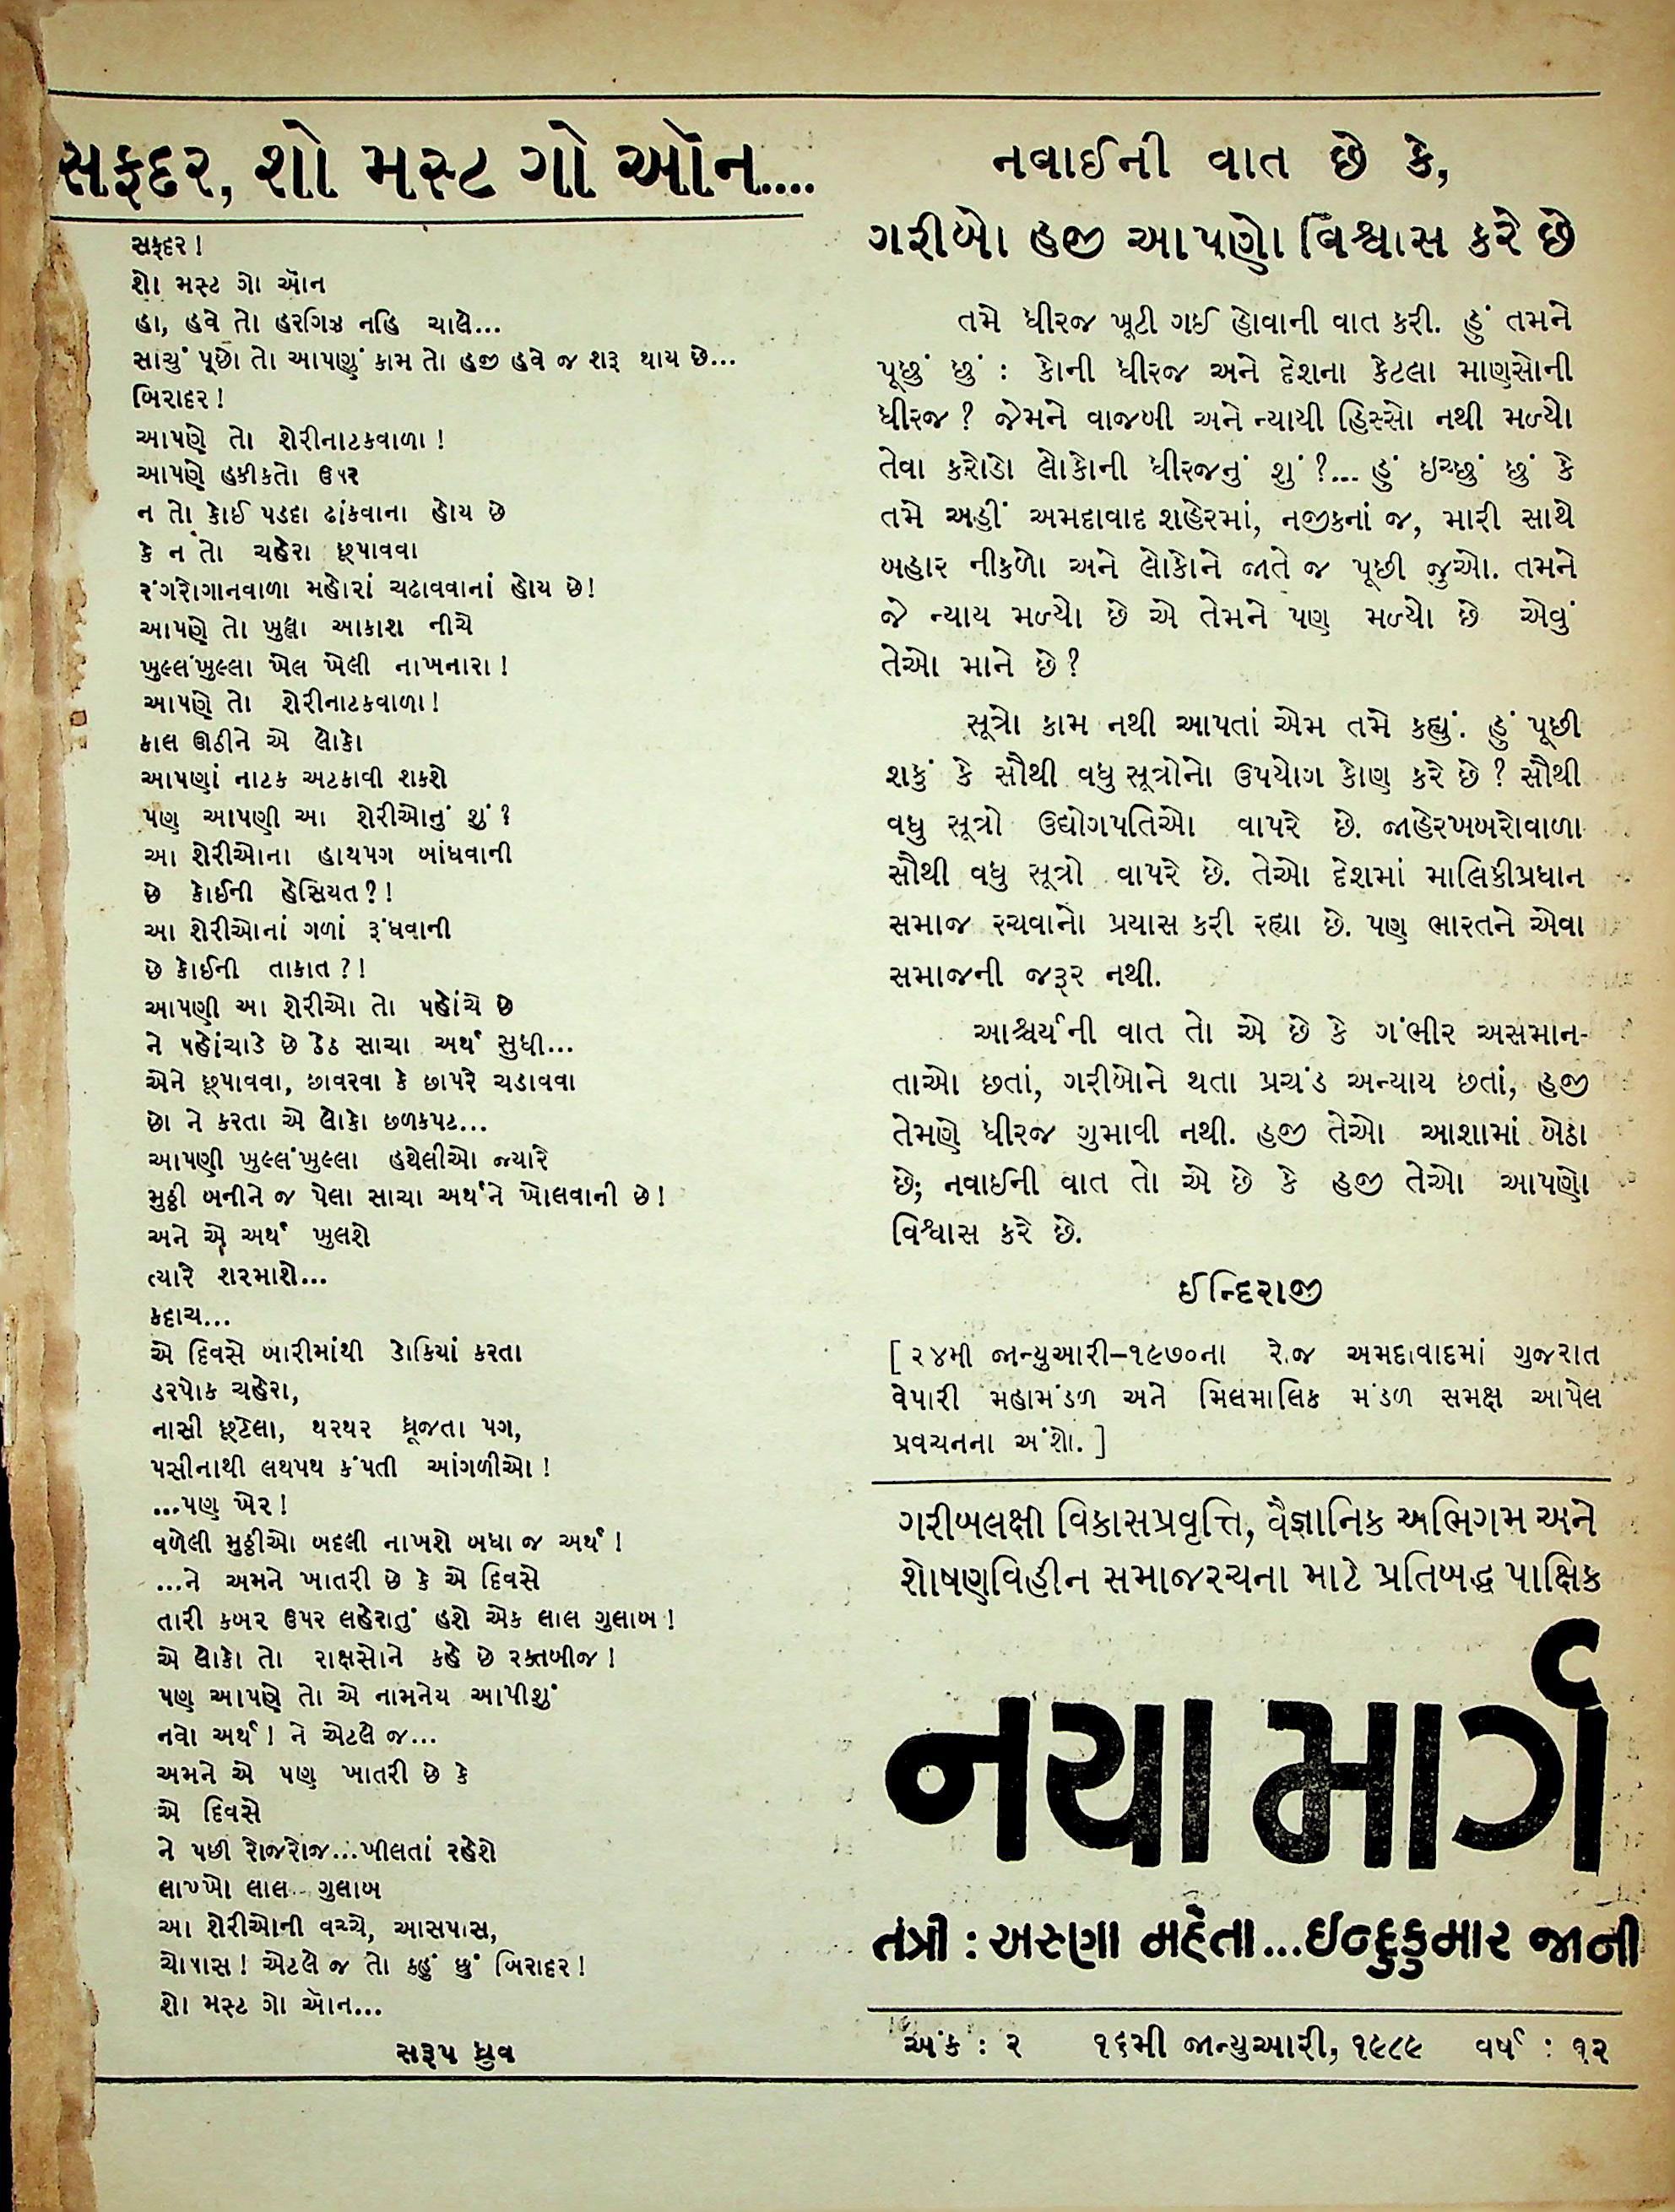 સફદર, શો મસ્ટ ગો ઑન....
સફદર !
શો મસ્ટ ગો ઑન
હા, હવે તો હરગિઝ નહિ ચાલે...
સાચું પૂછો તો આપણું કામ તો હજી હવે જ શરૂ થાય છે...
બિરાદર !
આપણે તો શેરીનાટકવાળા !
આપણે હકીકતો ઉપર
ન તો કોઈ પડદા ઢાંકવાના હોય છે
કે ન તો ચહેરા છૂપાવવા
રંગરોગાનવાળા મહોરાં ચઢાવવાનાં હોય છે!
આપણે તો ખુલ્લા આકાશ નીચે
ખુલ્લંખુલ્લા ખેલ ખેલી નાખનારા !
આપણે તો શેરીનાટકવાળા!
કાલ ઊઠીને એ લોકો
આપણાં નાટક અટકાવી શકશે
પણ આપણી આ શેરીઓનું શું ?
આ શેરીઓના હાથપગ બાંધવાની
છે કોઈની હેસિયત?!
આ શેરીઓનાં ગળાં રૂંધવાની
છે કોઈની તાકાત ?!
આપણી આ શેરીઓ તો પહોંચે છે
ને પહોંચાડે છે ઠેઠ સાચા અર્થ સુધી...
એને છૂપાવવા, છાવરવા કે છાપરે ચડાવવા
છો ને કરતા એ લોકો છળકપટ...
આપણી ખુલ્લંખુલ્લા હથેલીઓ જ્યારે
મુઠ્ઠી બનીને જ પેલા સાચા અર્થને ખોલવાની છે!
અને એ અર્થ ખુલશે
ત્યારે શરમાશે...
કદાચ...
એ દિવસે બારીમાંથી ડોકિયાં કરતા
ડરપોક ચહેરા,
નાસી છૂટેલા, થરથર ધ્રૂજતા પગ,
પસીનાથી લથપથ કંપતી આંગળીઓ !
...પણ ખેર !
વળેલી મુઠ્ઠીઓ બદલી નાખશે બધા જ અર્થ !
...ને અમને ખાતરી છે કે એ દિવસે
તારી કબર ઉપર લહેરાતું હશે એક લાલ ગુલાબ !
એ લોકો તો રાક્ષસોને કહે છે રક્તબીજ !
પણ આપણે તો એ નામનેય આપીશું
નવો અર્થ ! ને એટલે જ...
અમને એ પણ ખાતરી છે કે
એ દિવસે
ને પછી રોજરોજ...ખીલતાં રહેશે
લાખ્ખો લાલ ગુલાબ
આ શેરીઓની વચ્ચે, આસપાસ,
ચોપાસ ! એટલે જ તો કહું છું બિરાદર !
શો મસ્ટ ગો ઑન...
સરૂપ ધ્રુવ
નવાઈની વાત છે કે,
ગરીબો હજી આપણો વિશ્વાસ કરે છે
તમે ધીરજ ખૂટી ગઈ હોવાની વાત કરી. હું તમને
પૂછું છું : કોની ધીરજ અને દેશના કેટલા માણસોની
ધીરજ ? જેમને વાજબી અને ન્યાયી હિસ્સો નથી મળ્યો
તેવા કરોડો લોકોની ધીરજનું શું ?... હું ઇચ્છું છું કે
તમે અહીં અમદાવાદ શહેરમાં, નજીકનાં જ, મારી સાથે
બહાર નીકળો અને લોકોને જાતે જ પૂછી જુઓ. તમને
જે ન્યાય મળ્યો છે એ તેમને પણ મળ્યો છે એવું
તેઓ માને છે ?
સૂત્રો કામ નથી આપતાં એમ તમે કહ્યું. હું પૂછી
શકું કે સૌથી વધુ સૂત્રોનો ઉપયોગ કોણ કરે છે ? સૌથી
વધુ સૂત્રો ઉદ્યોગપતિઓ વાપરે છે. જાહેરખબરોવાળા
સૌથી વધુ સૂત્રો વાપરે છે. તેઓ દેશમાં માલિકીપ્રધાન
સમાજ રચવાનો પ્રયાસ કરી રહ્યા છે. પણ ભારતને એવા
સમાજની જરૂર નથી.
આશ્ચર્યની વાત તો એ છે કે ગંભીર અસમાન-
તાઓ છતાં, ગરીબોને થતા પ્રચંડ અન્યાય છતાં, હજી
તેમણે ધીરજ ગુમાવી નથી. હજી તેઓ આશામાં બેઠા
છે; નવાઈની વાત તો એ છે કે હજી તેઓ આપણો
વિશ્વાસ કરે છે.
ઈન્દિરાજી
[ ૨૪મી જાન્યુઆરી–૧૯૭૦ના રોજ અમદાવાદમાં ગુજરાત
વેપારી મહામંડળ અને મિલમાલિક મંડળ સમક્ષ આપેલ
પ્રવચનના અંશો. ]
ગરીબલક્ષી વિકાસપ્રવૃત્તિ, વૈજ્ઞાનિક અભિગમ અને
શોષણવિહીન સમાજરચના માટે પ્રતિબદ્ધ પાક્ષિક
નયા માર્ગ
તંત્રી : અરુણા મહેતા...ઈન્દુકુમાર જાની
અંક : ૨ ૧૬મી જાન્યુઆરી, ૧૯૮૯ વર્ષ : ૧૨